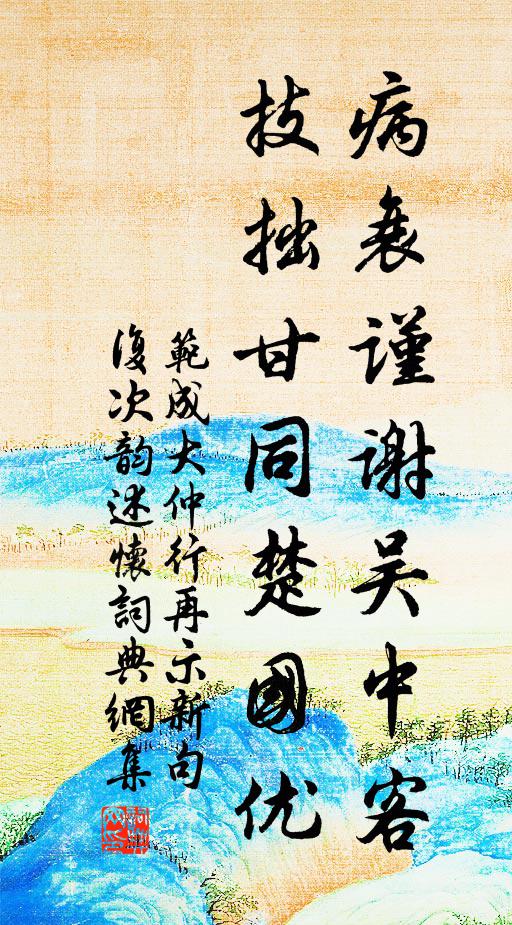 病衰谨謝吴中客
技拙甘同楚國优
範成大仲行再示新句
復次韵述懷詞典網集